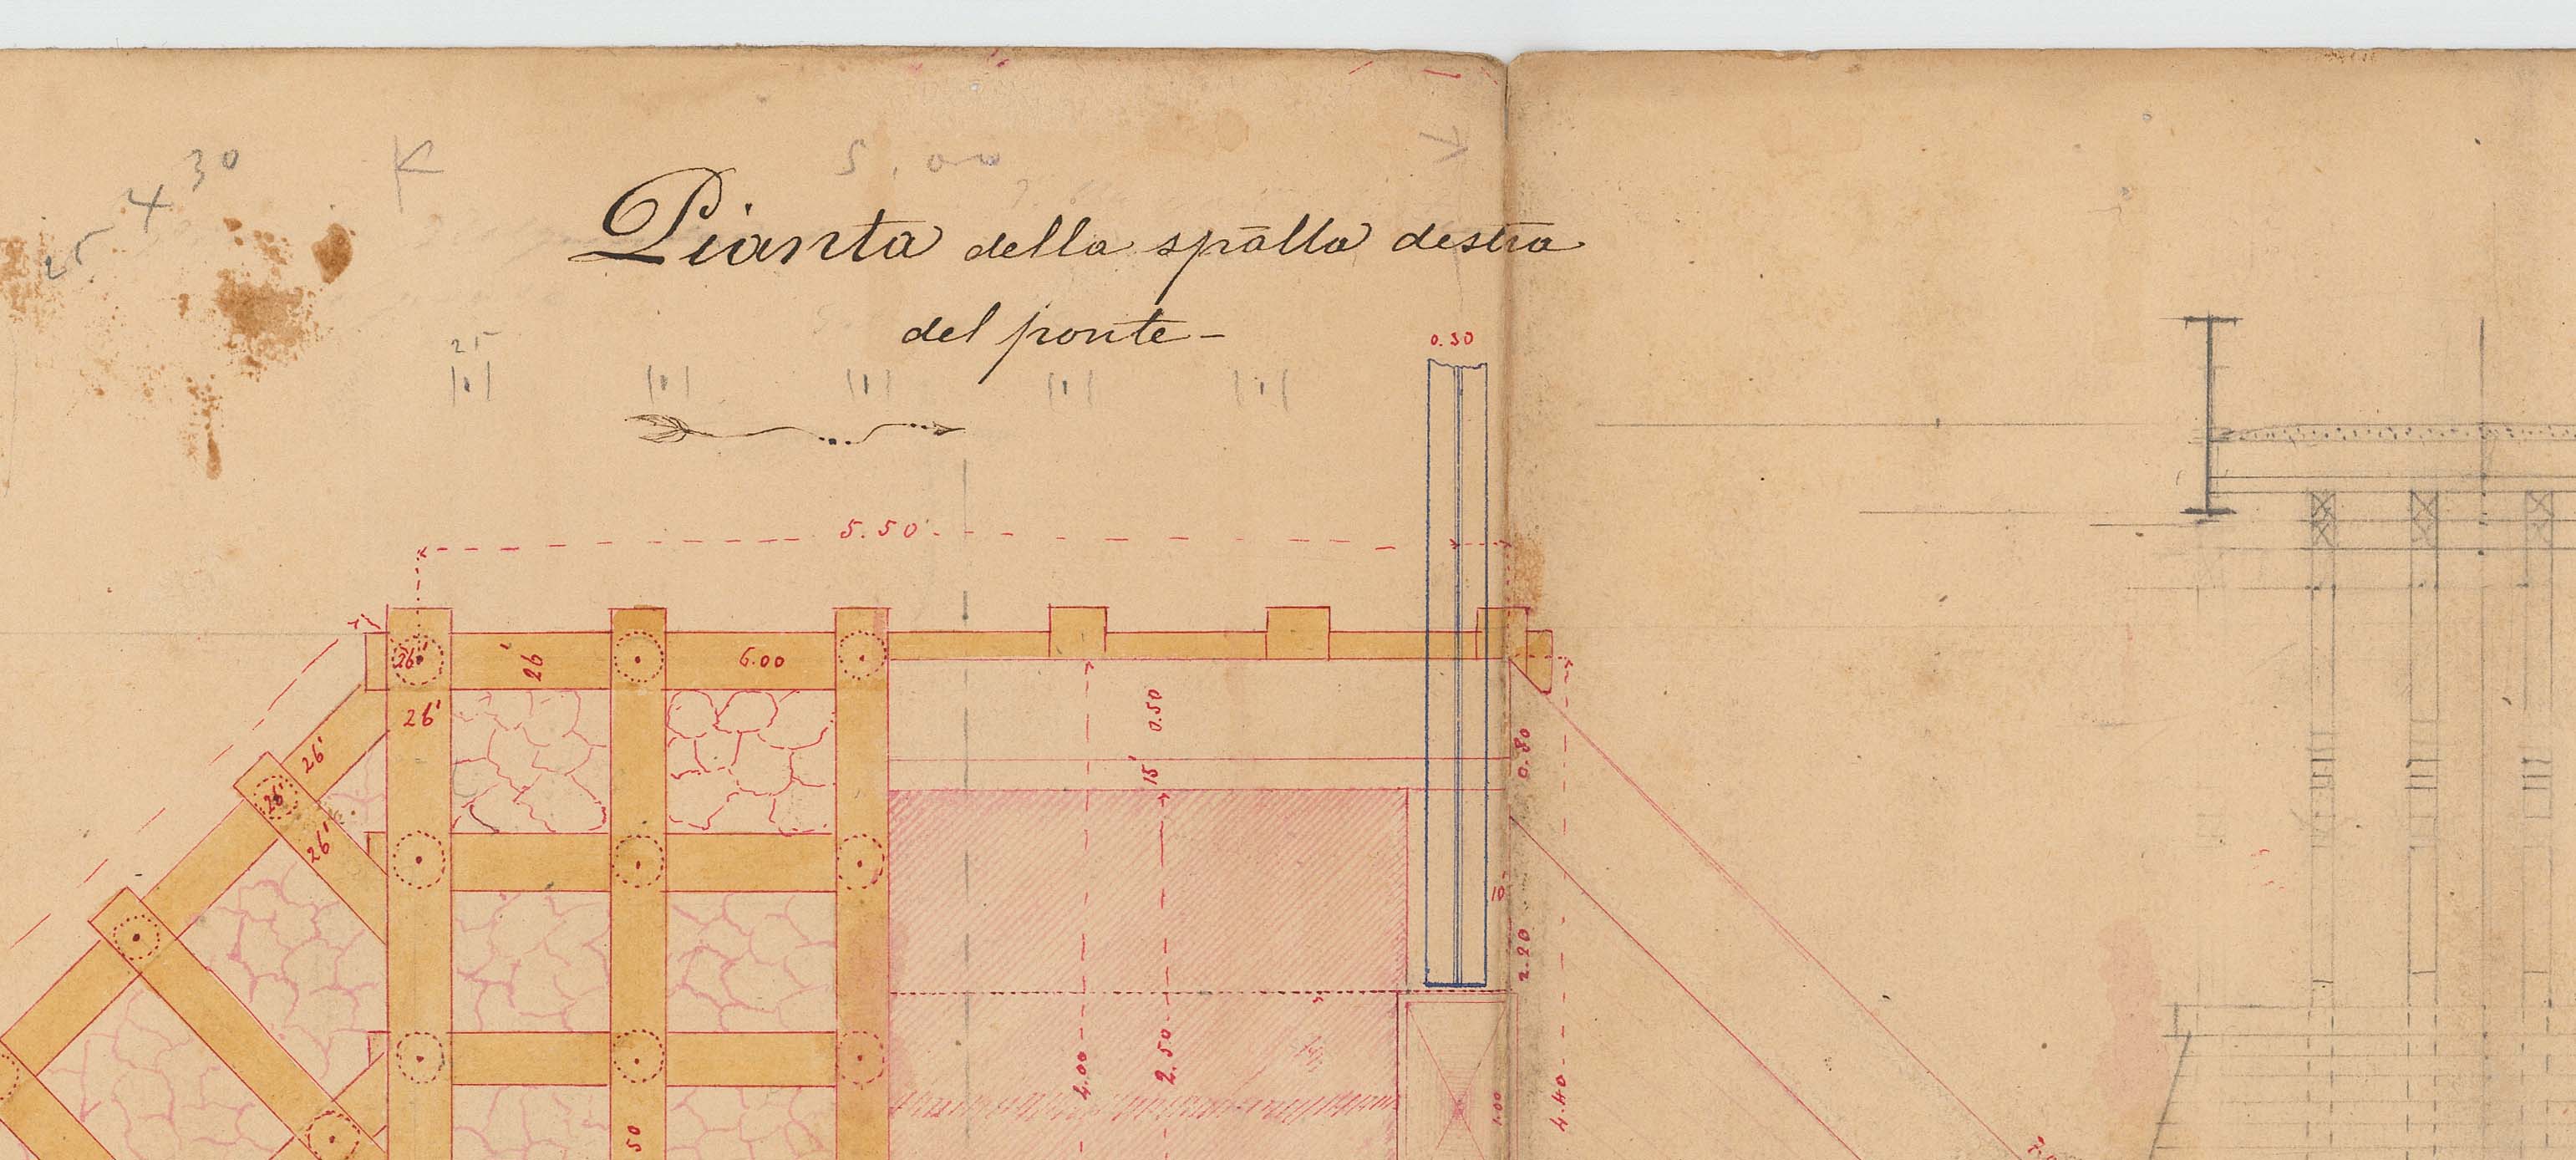 30
4
25
5.00
Pianta della spalla destra
del ponte -
25
0.30
5.50
26'
26'
6.00
26'
0.50
26'
0.80
15'
26'
26'
10
2.20
4.00
2.50
1.00
4.40
50